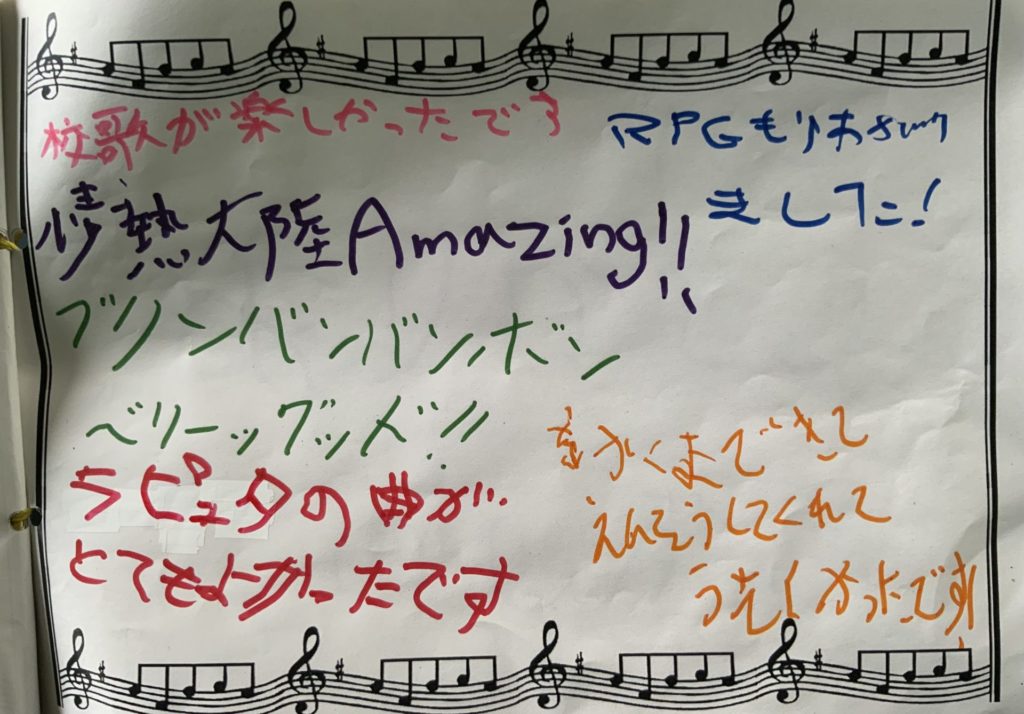 校歌が楽しかったです
RPGもり
ました!
情熱大陸Amazing!!
ブリンバンバンボン
ベリーッグッド!!
ラピュタの曲が
とてもよかったです
まできて
えんそうしてくれて
うれしかったです!